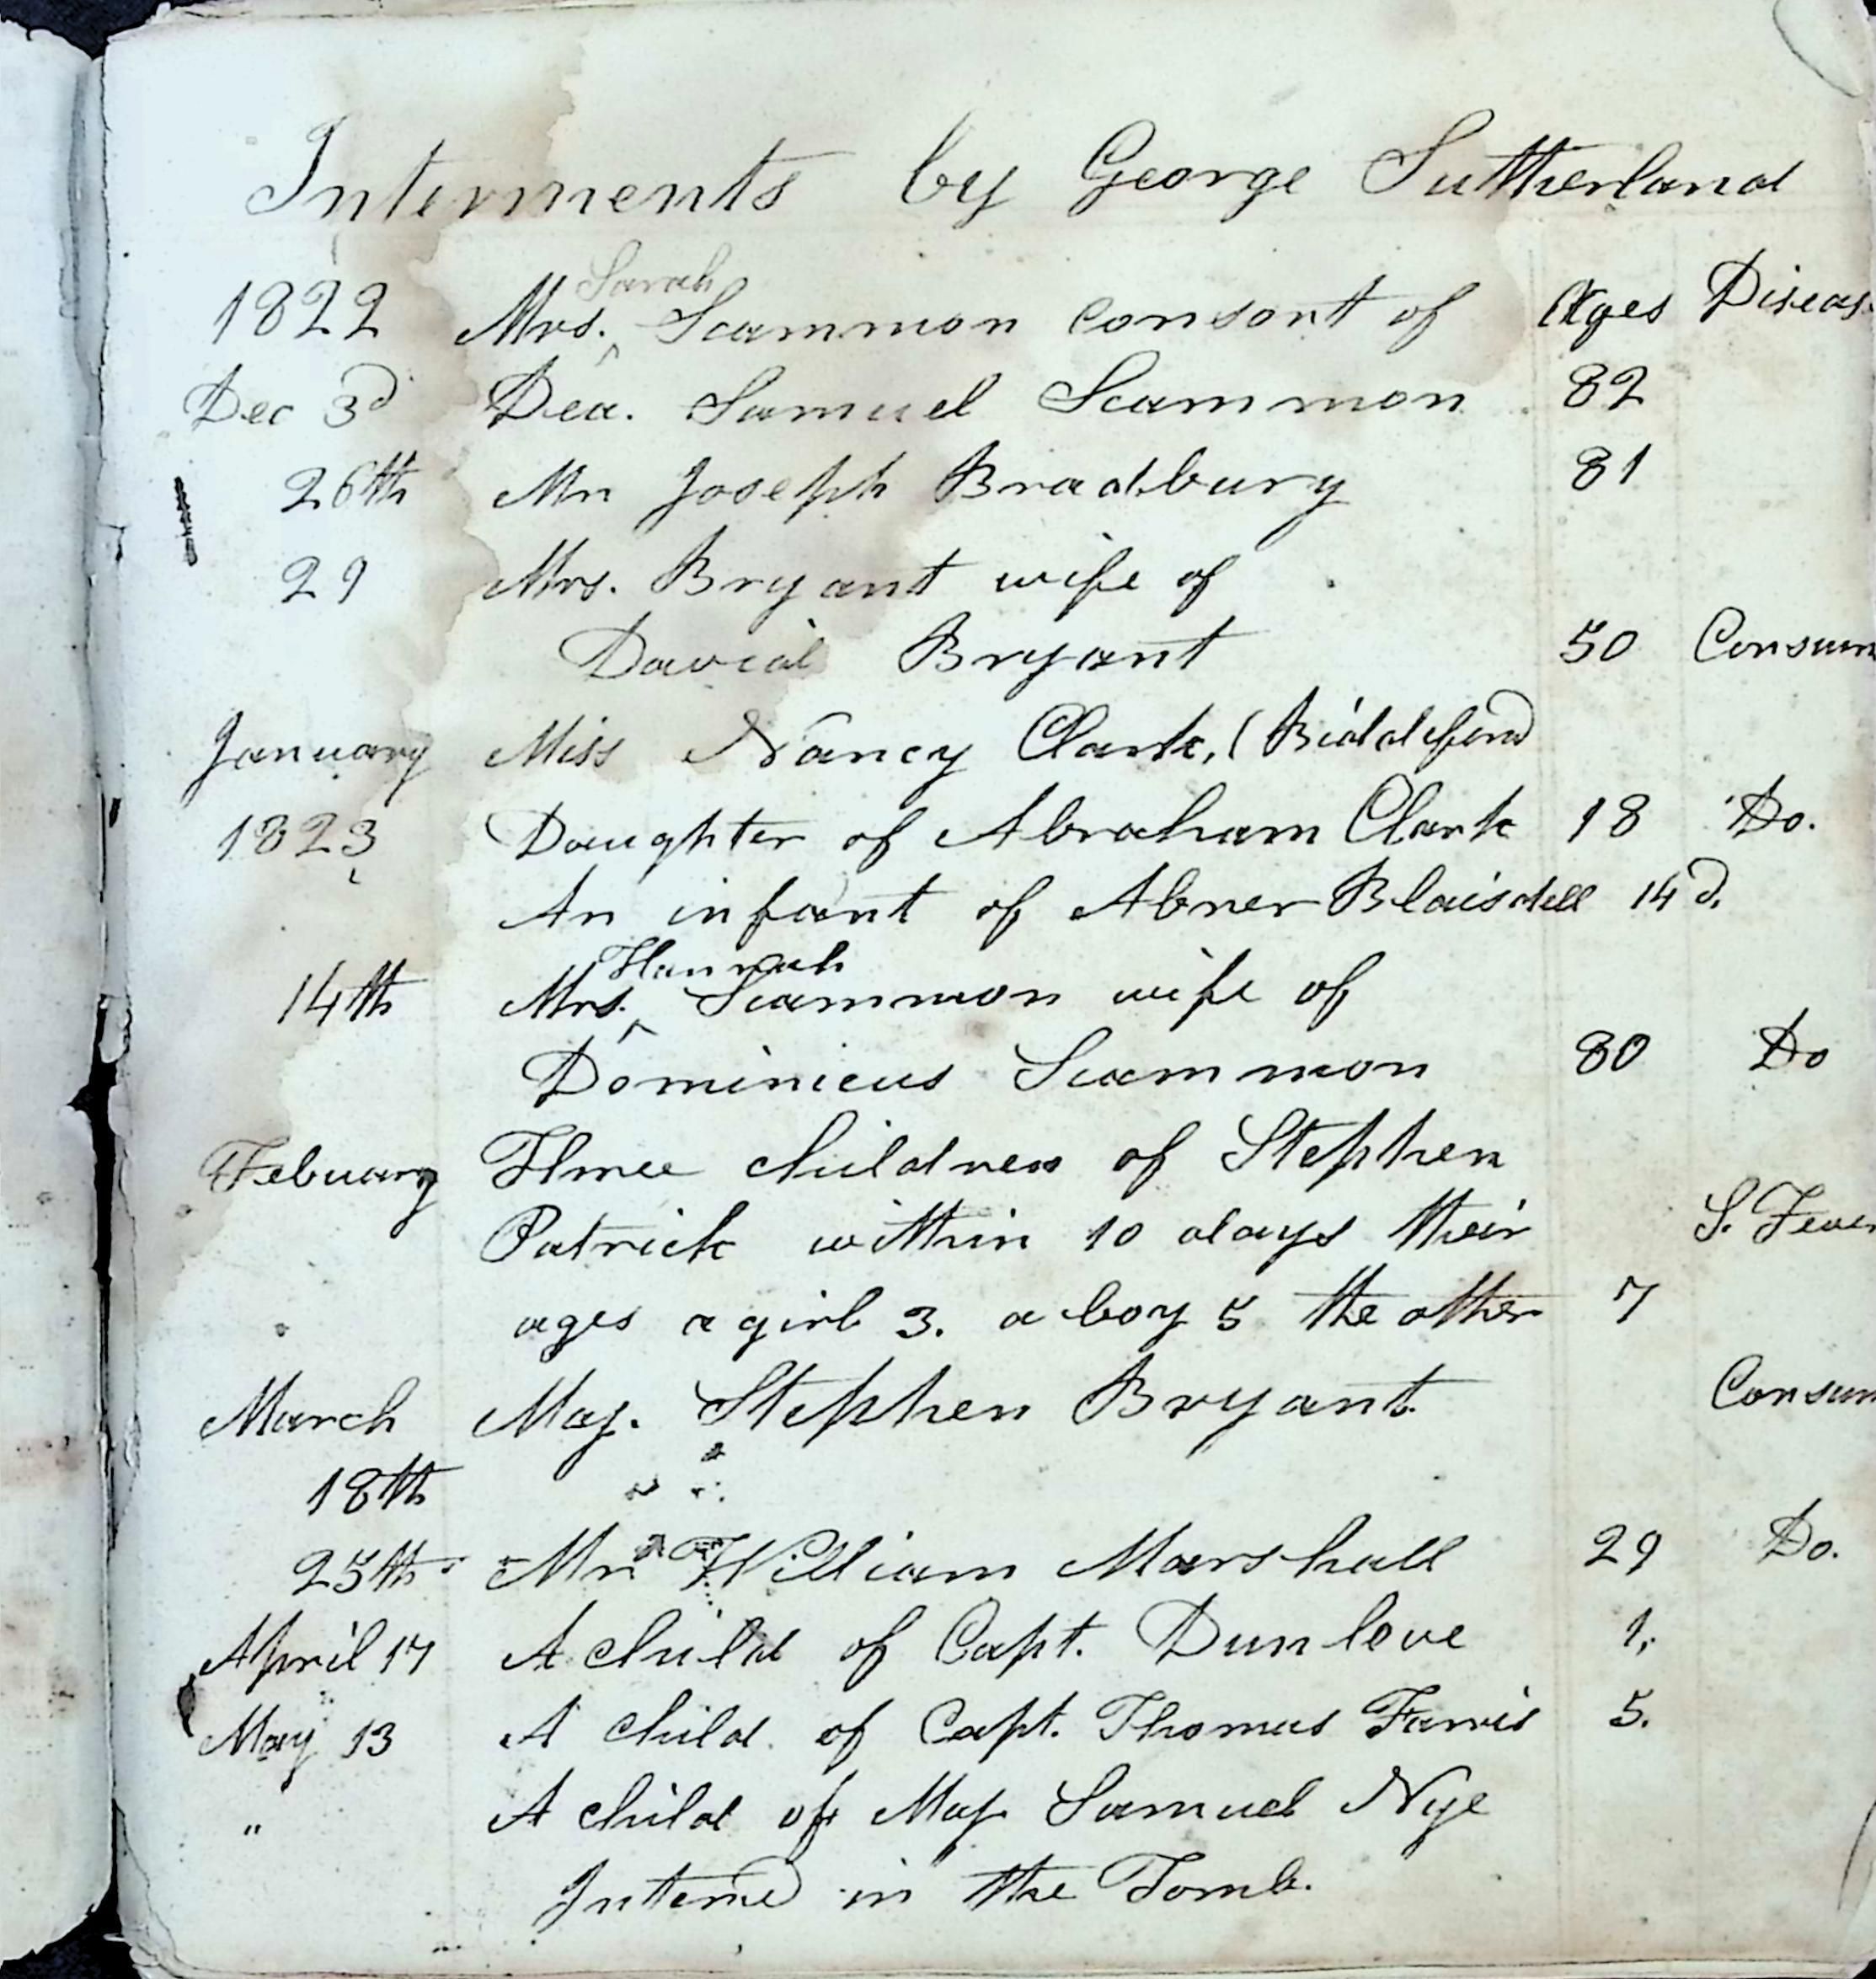 Interments by George Sutherland
Sarah
1822 Mrs. ^ Scammon consort of Ages Diseas
Dec 3d Dea. Samuel Scammon 82
26th Mr Joseph Bradbury 81
29 Mrs. Bryant wife of
David Bryant 50 Consum
January Miss Nancy Clark, (Biddeford
1823 Daughter of Abraham Clark 18 Do.
An infant of Abner Blaisdell 14 d.
Hannah
14th Mrs. ^ Scammon wife of
Dominicus Scammon 80 Do
Febuary Three children of Stephen
Patrick within 10 days their S. Fever
ages a girl 3. a boy 5 the other 7
March Maj. Stephen Bryant. Consum
18th
25th Mr William Marshall 29 Do.
April 17 A child of Capt. Dunleve 1,
May 13 A child of Capt. Thomas Farris 5.
" A child of Maj Samuel Nye
Interred in the Tomb.